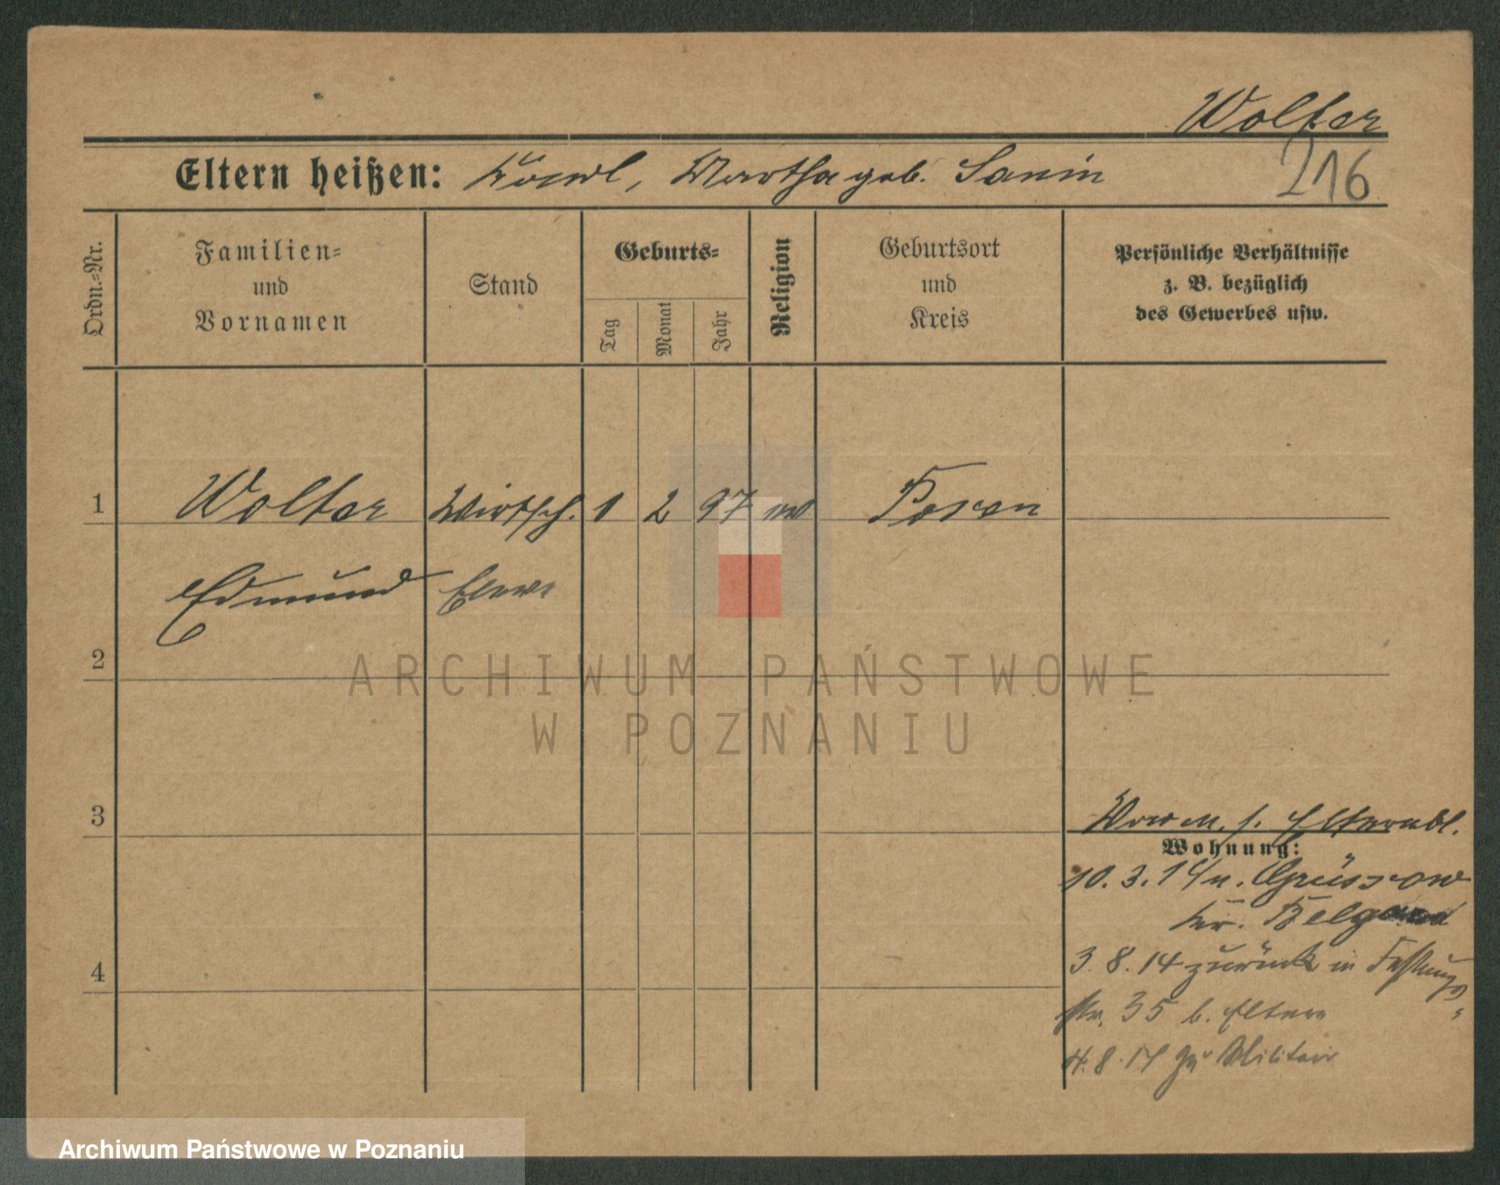 Wolter
Eltern heißen: Karl, Martha geb. Sanin
216
Ordn.-Nr.
Familien-
und
Vornamen
Stand
Geburts-
Tag
Monat
Jahr
Religion
Geburtsort
und
Kreis
Persönliche Verhältnisse
z. B. bezüglich
des Gewerbes usw.
1 Wolter Wirtsch. 1 2 97 Posen
Edmund Eleve
2
3
4
Vorm. s. Elternbl.
Wohnung:
10. 3. 14 n. Grüssow
Kr. Belgard
3. 8. 14 zurück in Festungs-
str. 35 b. Eltern
4. 8. 14 zu Militair
ARCHIWUM PAŃSTWOWE
W POZNANIU
Archiwum Państwowe w Poznaniu